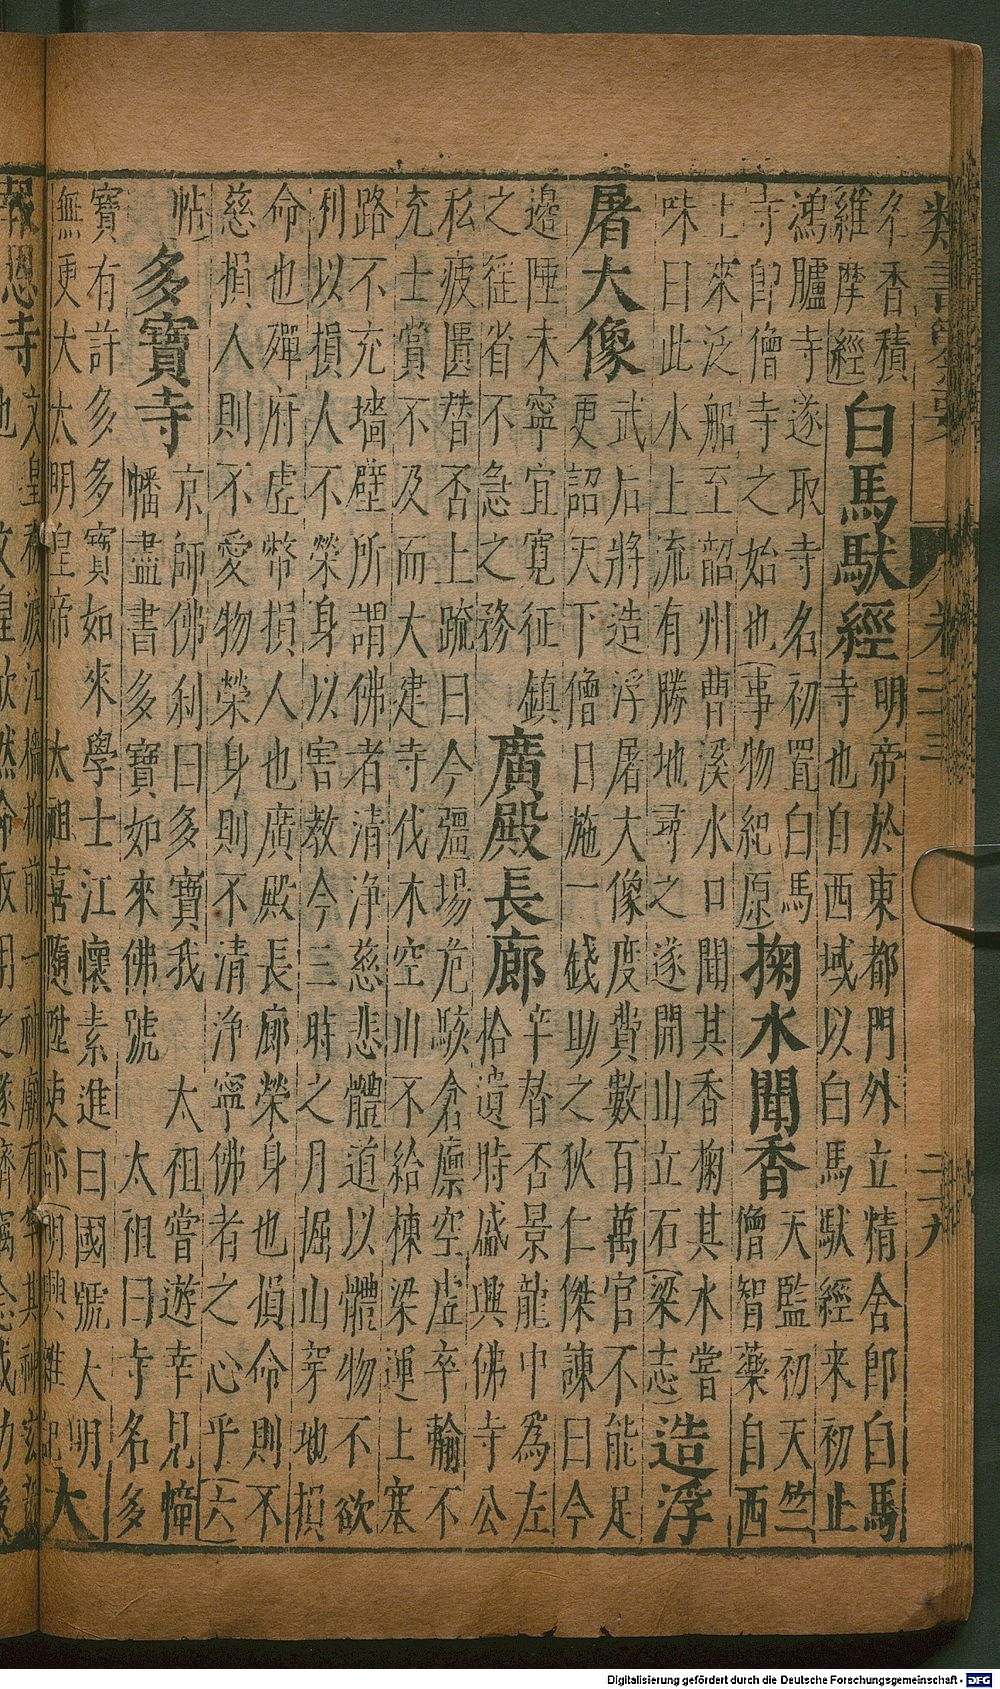 類書 卷二十三 二十九
名香積
維摩經
白馬馱經
明帝於東都門外立精舍即白馬
寺也自西域以白馬馱經来初止
鴻臚寺遂取寺名初置白馬
寺即僧寺之始也(事物紀原)
掬水聞香
天監初天竺
僧智藥自西
土來泛船至韶州曹溪水口聞其香掬其水嘗
味曰此水上流有勝地尋之遂開山立石(梁志)
造浮
屠大像
武后將造浮屠大像度費數百萬官不能足
更詔天下僧日施一錢助之狄仁傑諫曰今
邊陲未寧宜寬征鎮
之徭省不急之務
廣殿長廊
辛替否景龍中為左
拾遺時盛興佛寺公
私疲匱替否上疏曰今疆場危駭倉廩空虛卒輸不
充士賞不及而大建寺伐木空山不給棟梁運土塞
路不充墻壁所謂佛者清浄慈悲體道以體物不欲
利以損人不榮身以害教今三時之月掘山穿地損
命也殫府虛幣損人也廣殿長廊榮身也損命則不
慈損人則不愛物榮身則不清浄寧佛者之心乎(六
帖)
多寶寺
京師佛刹曰多寶我 太祖嘗遊幸見幢
幡盡書多寶如來佛號 太祖曰寺名多
寶有許多多寶如來學士江懷素進曰國號大明
無更大太明皇帝 太祖喜隨陞吏部(明興雜記)
大
報恩寺
Digitalisierung gefördert durch die Deutsche Forschungsgemeinschaft - DFG